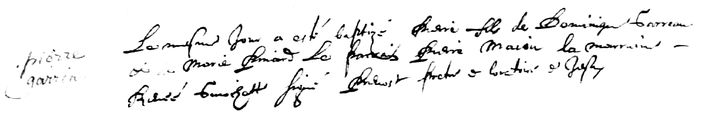 pierre
garreau
Le mesme jour a esté baptizé Pierre fils de Dominique Garreau
et de Marie Pinard Le parain Pierre Maion la marraine –
Renée signé Prevost prêtre